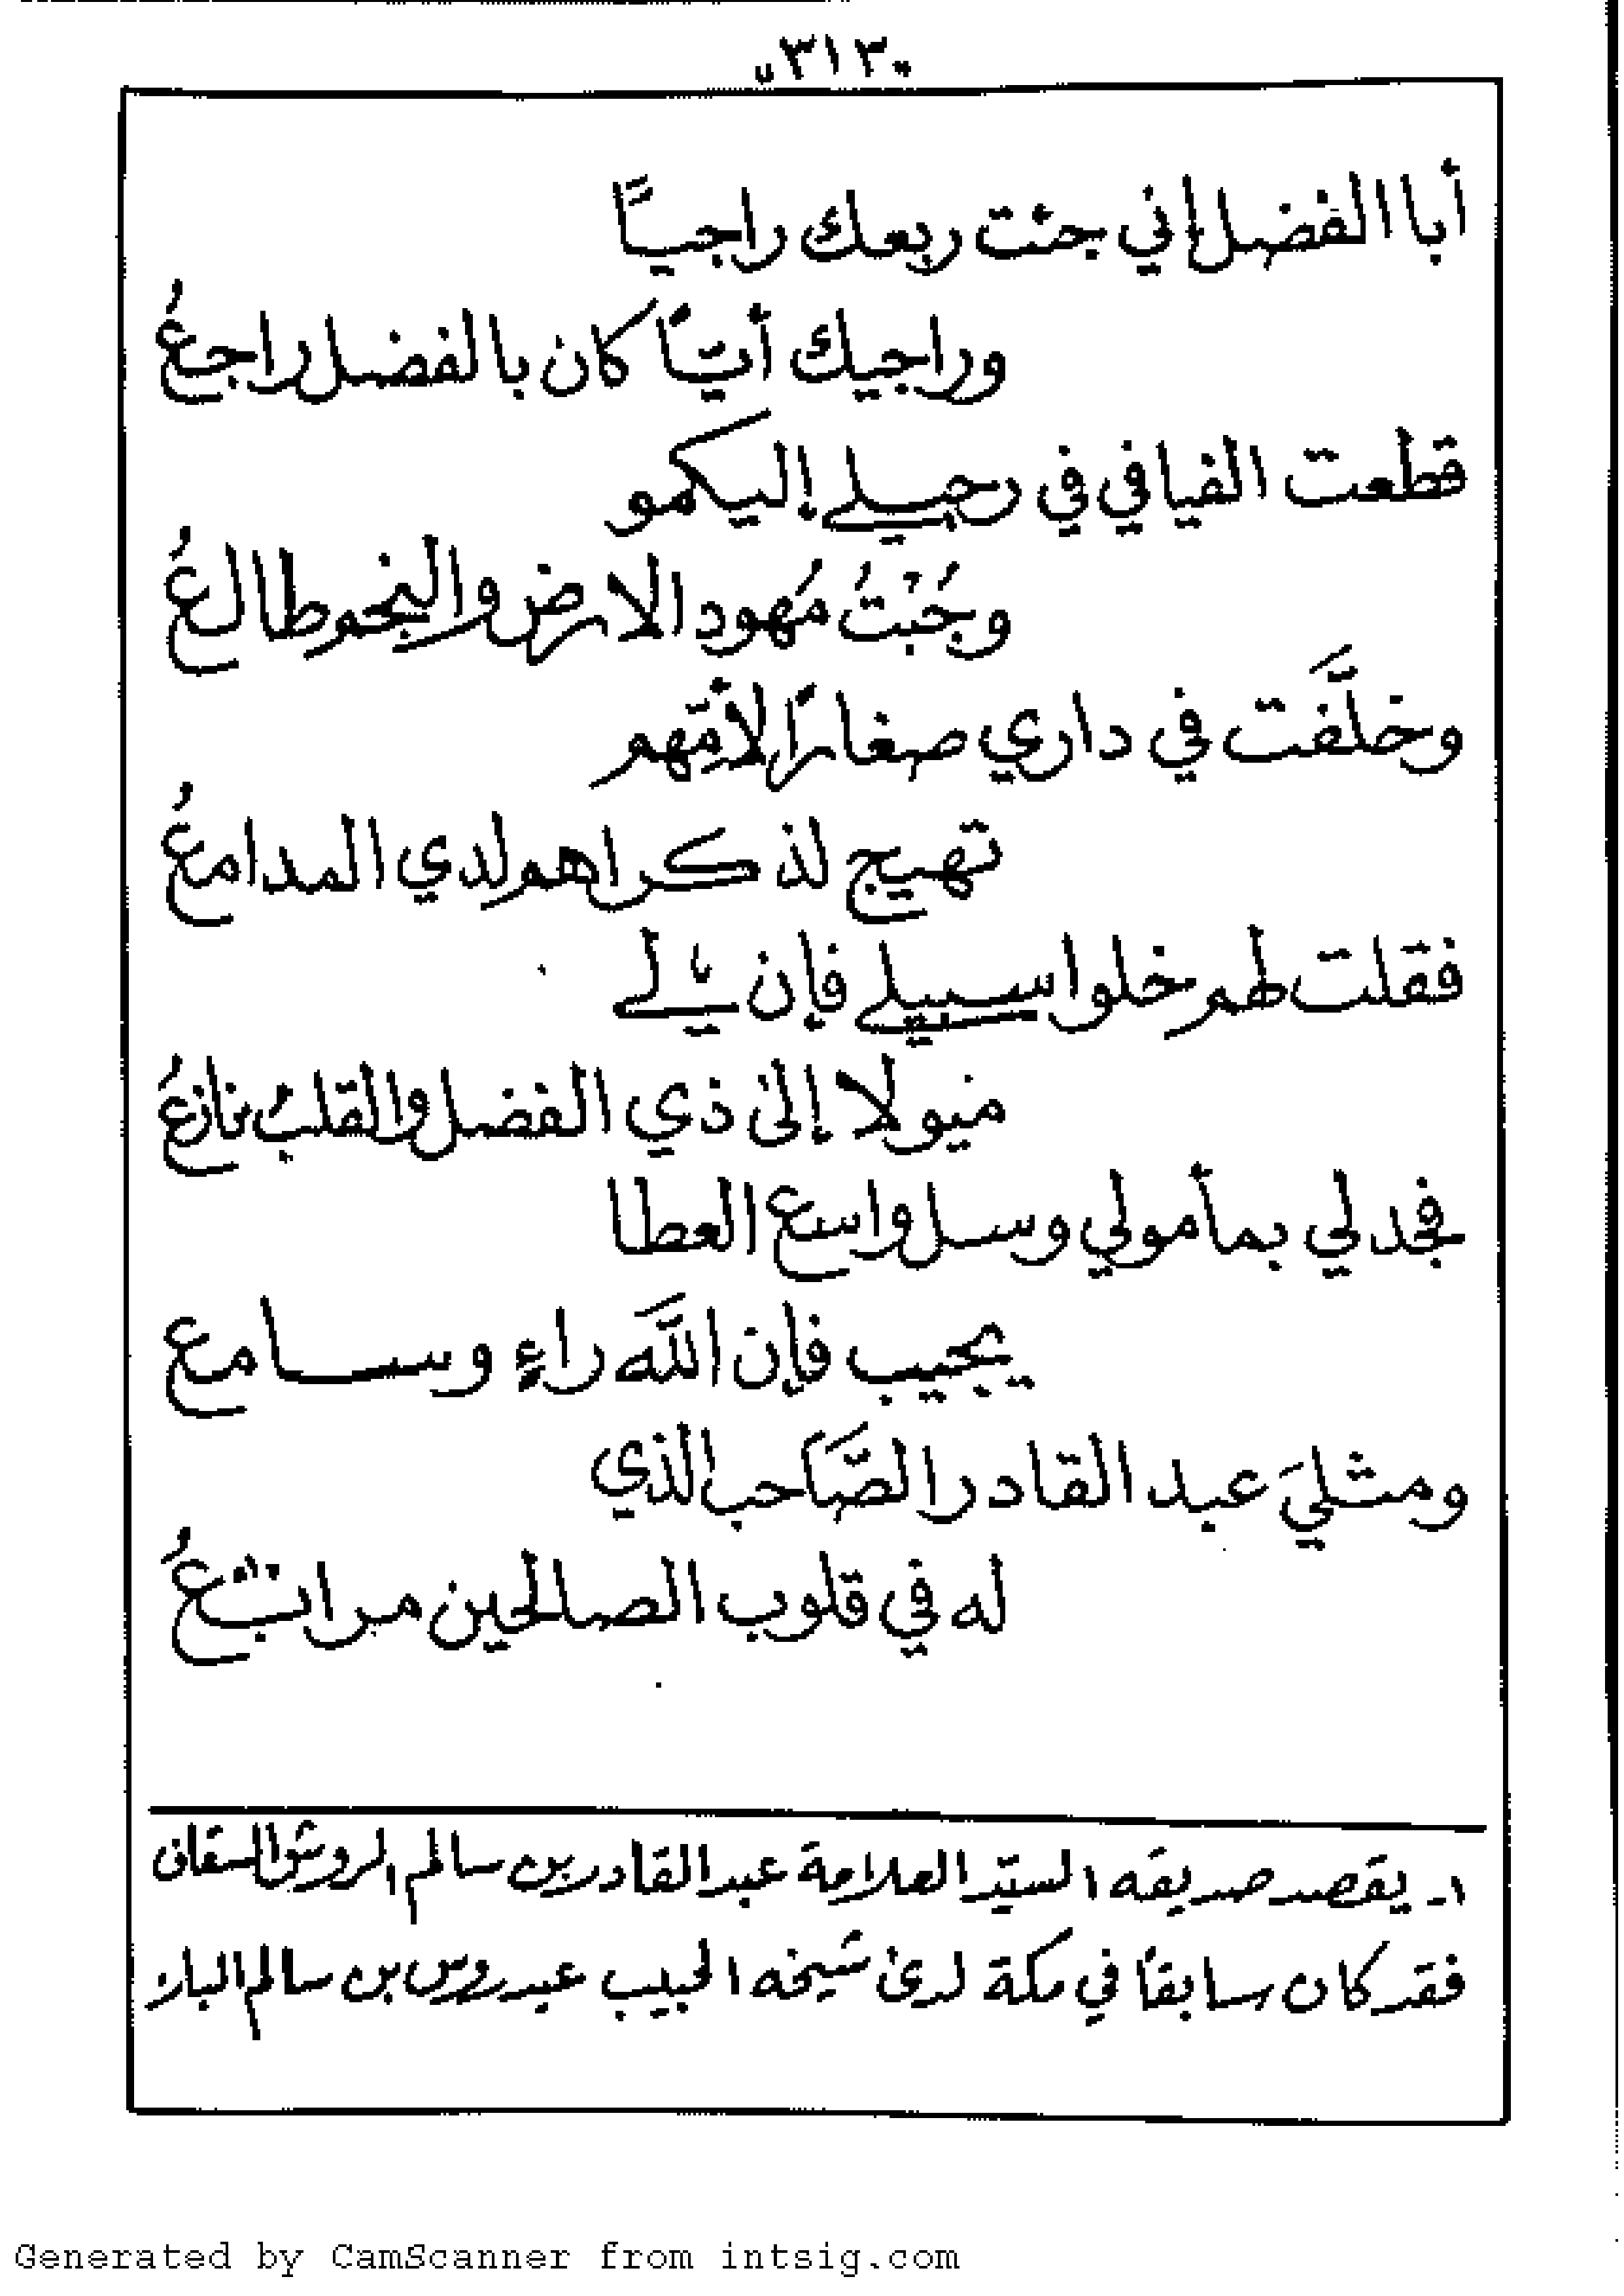 ٣١٣
أبا الفضل إني جئت ربعك راجيًا
وراجيك أيًّا كان بالفضل راجعُ
قطعت الفيافي في رحيلي إليكمو
وجُبْتُ مُهود الارض والنجم طالعُ
وخلَّفت في داري صغارًا لأمِّهم
تهيج لذكراهم لدي المدامعُ
فقلت لهم خلوا سبيلي فإن لي
ميولا إلى ذي الفضل والقلبُ نازعُ
فجد لي بمأمولي وسل واسع العطا
يجيب فإن اللَّه راءٍ وسامع
ومثليَ عبد القادر الصَّاحب الذي
له في قلوب الصالحين مراتعُ
١ـ يقصد صديقه السيّد العلامة عبد القادر بن سالم الروش السقاف
فقد كان سابقاً في مكة لدى شيخه الحبيب عيدروس بن سالم البار
Generated by CamScanner from intsig.com